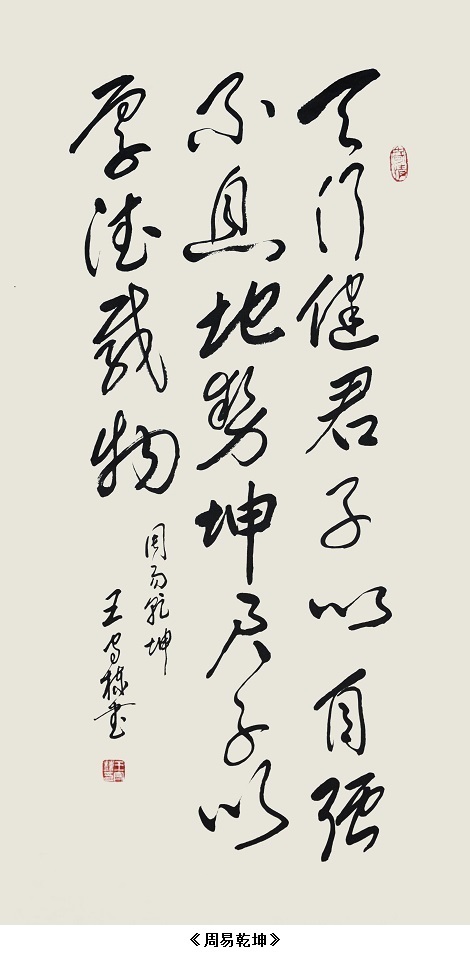 天行健君子以自强
不息地势坤君子以
厚德载物
周易乾坤
王守栋书
《周易乾坤》